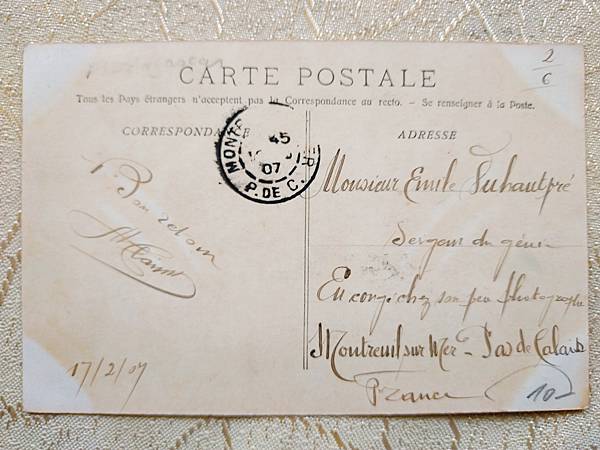 2
6
CARTE POSTALE
Tous les Pays étrangers n'acceptent pas la Correspondance au recto. - Se renseigner à la Poste.
CORRESPONDANCE
ADRESSE
45
07
P. DE C.
Bon retour
17/2/07
Monsieur Emile Duhautpré
Sergent du génie
En congé chez son père photographe
Montreuil sur Mer - Pas de Calais
France
10-